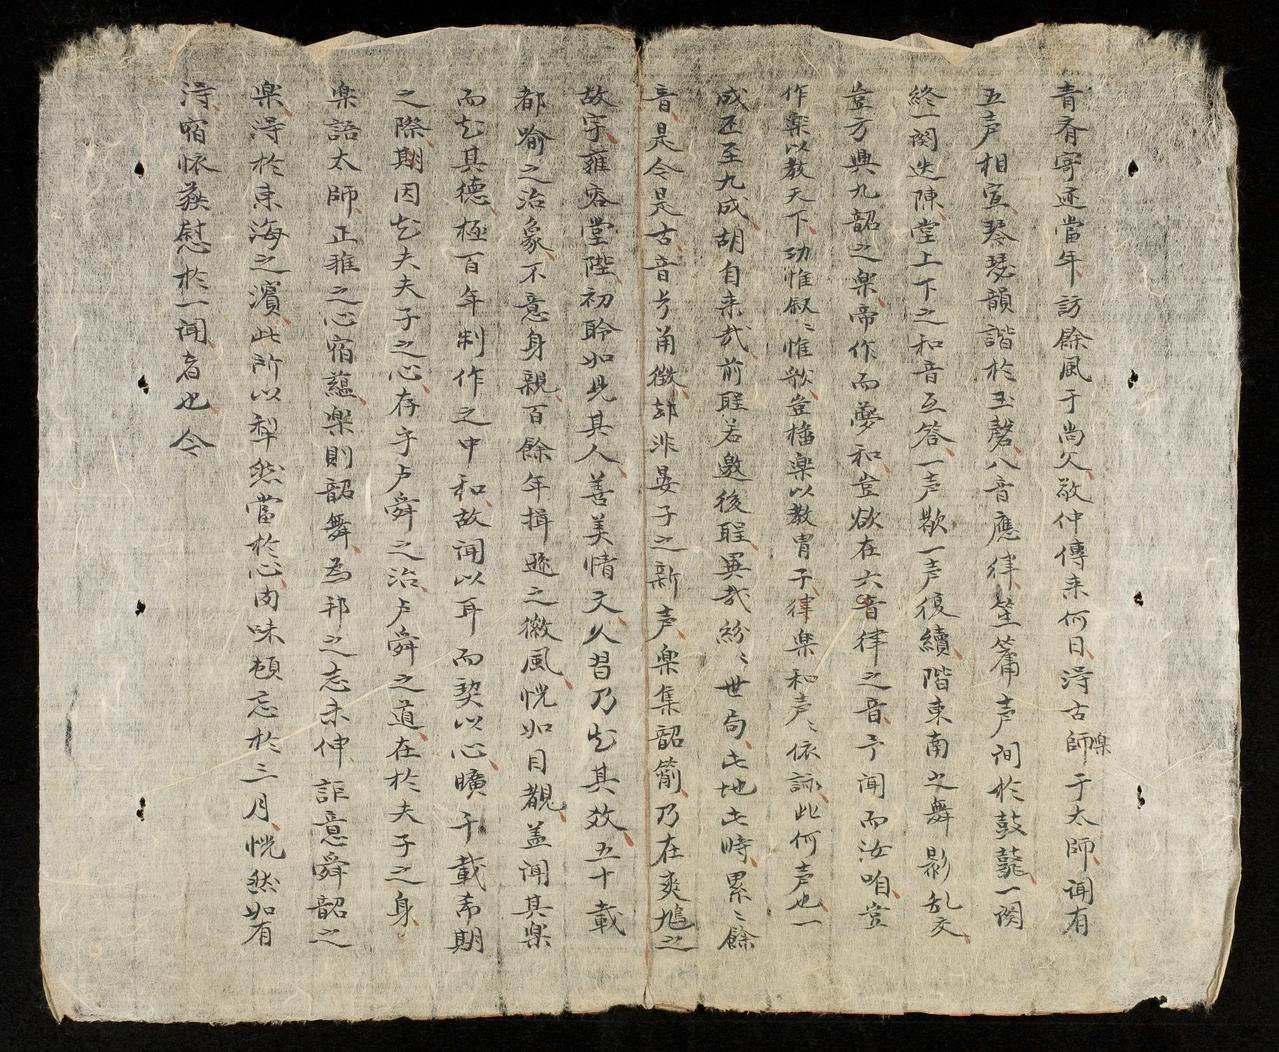 青齐寄迹當年訪餘風于尚父敬仲傳来何日淂古楽師于太師闻有
五声相宣琴瑟韻諧於玉磬八音應律笙簫声间於鼓鼗一閧
終一閧迭陳堂上下之和音互答一声歇一声復續階東南之舞影乱交
豈方興九韶之楽帝作而夢和豈欲在六音律之音予闻而汝咱豈
作楽以教天下功惟叙〻惟歌豈播楽以教胄子律楽和声〻依詠此何声也一
成丕至九成胡自来哉前聖若邀後聖異哉紛〻世局此地此时累〻餘
音是今是古音兮角徵却非晏子之新声楽集韶箾乃在爽鳩之
故宇雍容堂陛初聆如見其人善美情文久習乃知其效五十載
都喻之治象不意身親百餘年揖遜之徽風恍如目覩盖闻其楽
而知其德極百年制作之中和故闻以耳而契以心曠千載希期
之際期因知夫夫子之心存乎卢舜之治卢舜之道在於夫子之身
楽語太師正雅之心宿蕴楽則韶舞為邦之志未伸詎意舜韶之
楽淂於東海之濱此所以犁然當於心肉味頓忘於三月恍然如有
淂宿怀荻慰於一闻者也今